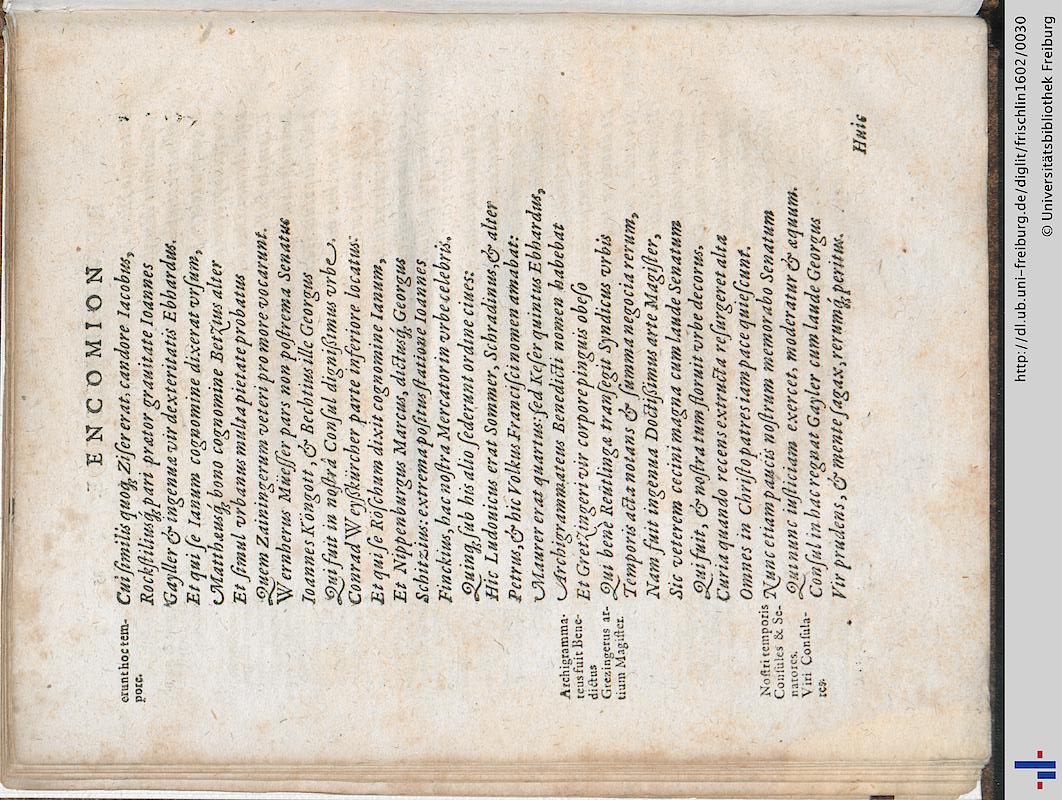 ENCOMION
erunt hoc tem-
pore.
Cui similis quoq; Ziser erat, candore Iacobus,
Rockstiliusq́; pari prætor grauitate Ioannes
Gayller & ingenuæ vir dexteritatis Ebhardus.
Et qui se Ianum cognomine dixerat vrsum,
Mathæusq́; bono cognomine Betzius alter
Et simul vrbanus multa pietate probatus
Quem Zainingerum veteri pro more vocarunt.
Wernherus Müesser pars non postrema Senatus
Ioannes Kingott, & Bechtius ille Georgus
Qui fuit in nostrâ Consul dignissimus vrbe,
Conrad Weyßkürcher parte inferiore locatus:
Et qui se Roschum dixit cognomine Ianum,
Et Nippenburgus Marcus, dictusq́; Georgus
Schitzius: extrema postus statione Ioannes
Finckius, hac nostra Mercator in vrbe celebris.
Quinq; sub his alio sederunt ordine ciues:
Hic Ludouicus erat Sommer, Schradinus, & alter
Petrus, & hic Volkus Francisci nomen amabat:
Maurer erat quartus: sed Keser quintus Ebhardus,
Archigrammateus Benedicti nomen habebat
Archigramma-
teus fuit Bene-
dictus
Grezingerus ar-
tium Magister.
Et Gretzingeri vir corpore pinguis obeso
Qui benè Reutlinga transegit Syndicus vrbis
Temporis acta notans & summa negocia rerum,
Nam fuit ingenua Doctissimus arte Magister,
Sic veterem cecini magna cum laude Senatum
Qui fuit, & nostra tum floruit vrbe decorus,
Curia quando recens extructa resurgeret alta
Omnes in Christo patres iam pace quiescunt.
Nunc etiam paucis nostrum memorabo Senatum
Nostri temporis
Consules & Se-
natores.
Viri Consula-
res.
Qui nunc iustitiam exercet, moderatur & æquum.
Consul in hac regnat Gayler cum laude Georgus
Vir prudens, & mente sagax, rerumq́; peritus.
Huic
http://dl.ub.uni-freiburg.de/diglit/frischlin1602/0030
© Universitätsbibliothek Freiburg